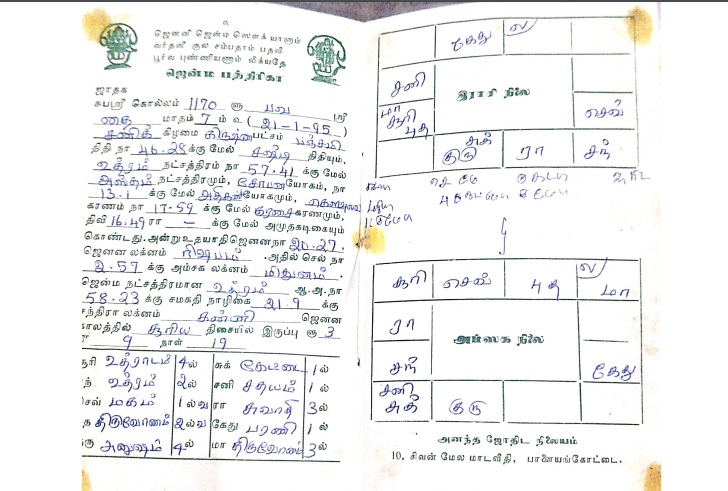 ஜெனனி ஜென்ம ஸௌக் யானும்
வர்தனி குல சம்பதாம் பதவி
பூர்வ புண்ணியணும் லிக்யதே
ஜென்ம பத்திரிகா
ஜாதக
சுபஸ்ரீ கொல்லம் 1170 ௵ பவ ஸ்ரீ
தை மாதம் 7 ம் உ (21-1-95)
சனிக் கிழமை கிருஷ்ண பட்சம் பஞ்சமி
திதி நா 46.28 க்கு மேல் சஷ்டி திதியும்,
உத்ரம் நட்சத்திரம் நா 57.41 க்கு மேல்
அஸ்தம் நட்சத்திரமும், யோகம், நா
13.1 க்கு மேல் யோகமும்,
கரணம் நா 17-59 க்கு மேல் கரசை கரணமும்,
திவி 16.49 ரா – க்கு மேல் அமுதகடிகையும்
கொண்டது. அன்று உதயாதி ஜெனன நா 20.27.
ஜெனன லக்னம் ரிஷபம். அதில் செல் நா
2.57 க்கு அம்சக லக்னம் மிதுனம்.
ஜென்ம நட்சத்திரமான உத்ரம் ஆ.அ.நா
58.23 க்கு சமகதி நாழிகை 21.9 க்கு
சந்திரா லக்னம் கன்னி ஜெனன
காலத்தில் சூரிய திசையில் இருப்பு ௵ 3
9 நாள் 19
சூரி உத்ராடம் 4ல் சுக் கேட்டை 1ல்
உத்ரம் 2ல் சனி சதயம் 1ல்
செவ் மகம் 1ல்வ ரா சுவாதி 3ல்
திருவோணம் 2ல்வ கேது பரணி 1ல்
அனுஷம் 4ல் மா திருவோணம் 3ல்
கேது ல
சனி இராசி நிலை
மா சூரி புத செவ்
சுக் குரு ரா சந்
சூரி செவ் புத ல மா
ரா அம்ஸக நிலை
சந் கேது
சனி சுக் குரு
அனந்த ஜோதிட நிலையம்
10, சிவன் மேல மாடவீதி, பாளையங்கோட்டை.